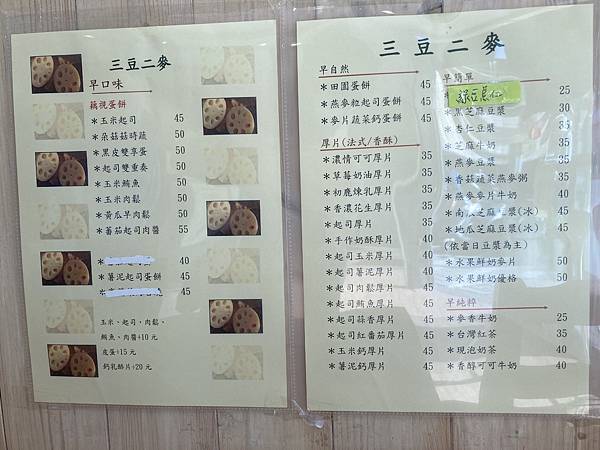 三豆二麥
早口味
藕視蛋餅
＊玉米起司 45
＊朵菇菇時蔬 50
＊黑皮雙享蛋 50
＊起司雙重奏 50
＊玉米鮪魚 50
＊玉米肉鬆 50
＊黃瓜早肉鬆 50
＊蕃茄起司肉醬 55
＊ 40
＊薯泥起司蛋餅 45
＊ 45
玉米、起司、肉鬆、
鮪魚、肉醬+10元
皮蛋+15元
鈣乳酪片+20元
三豆二麥
早自然
＊田園蛋餅 45
＊燕麥粒起司蛋餅 45
＊麥片蔬菜鈣蛋餅 45
厚片(法式/香酥)
＊濃情可可厚片 35
＊草莓奶油厚片 35
＊初鹿煉乳厚片 35
＊香濃花生厚片 35
＊起司厚片 35
＊手作奶酥厚片 40
＊起司玉米厚片 40
＊起司薯泥厚片 45
＊起司肉鬆厚片 45
＊起司鮪魚厚片 45
＊起司蒜香厚片 45
＊起司紅蕃茄厚片 45
＊玉米鈣厚片 45
＊薯泥鈣厚片 45
早簡單
＊綠豆薏仁 25
＊黑芝麻豆漿 30
＊杏仁豆漿 35
＊芝麻牛奶 35
＊燕麥豆漿 35
＊香菇蔬菜燕麥粥 35
＊燕麥麥片牛奶 40
＊南瓜芝麻豆漿(冰) 45
＊地瓜芝麻豆漿(冰) 45
(依當日豆漿為主)
＊水果鮮奶麥片 50
＊水果鮮奶優格 50
早純粹
＊麥香牛奶 25
＊台灣紅茶 35
＊現泡奶茶 40
＊香醇可可牛奶 40